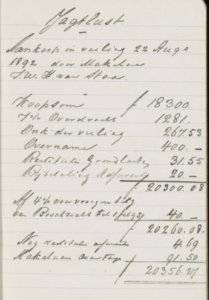 Jagtlust
Aankoop in veiling 22 Augs
1892 door Makelaar
J W H van Staa
Koopsom f 18300.
7% Overdracht 1281.
Onk: der veiling 267.53
Overname 400.-
Restitutie Grondlasten 31.55
20.-
f 20300.08
Af 4%
van 40.-
f 20260.08
Nog restitutie 4.69
Makelaars 91.50
f 20356.27